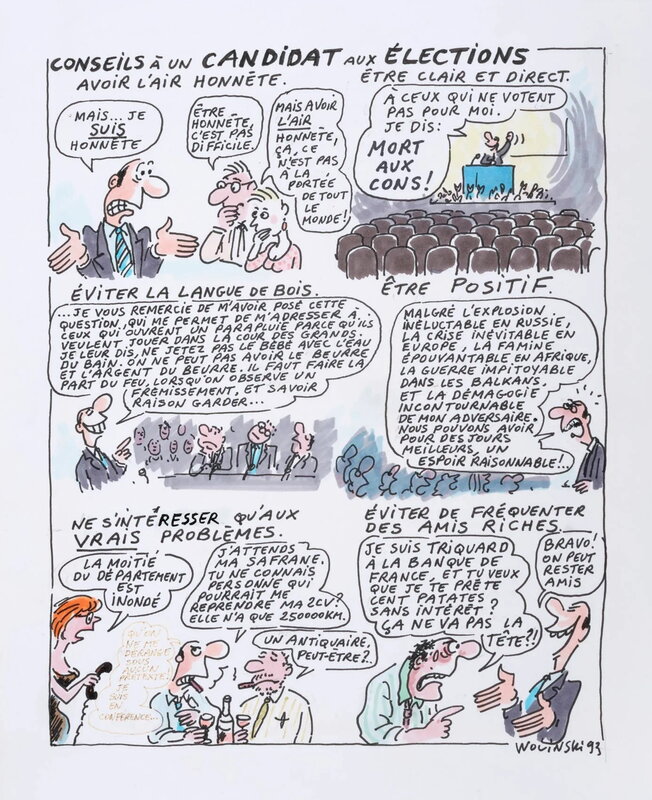 CONSEILS À UN CANDIDAT AUX ÉLECTIONS
AVOIR L'AIR HONNÊTE.
MAIS... JE
SUIS
HONNÊTE
ÊTRE
HONNÊTE,
C'EST PAS
DIFFICILE.
MAIS AVOIR
L'AIR
HONNÊTE,
ÇA, CE
N'EST PAS
À LA
PORTÉE
DE TOUT
LE
MONDE!
ÊTRE CLAIR ET DIRECT.
À CEUX QUI NE VOTENT
PAS POUR MOI.
JE DIS:
MORT
AUX
CONS!
ÉVITER LA LANGUE DE BOIS.
...JE VOUS REMERCIE DE M'AVOIR POSÉ CETTE
QUESTION, QUI ME PERMET DE M'ADRESSER À
CEUX QUI OUVRENT UN PARAPLUIE PARCE QU'ILS
VEULENT JOUER DANS LA COUR DES GRANDS.
JE LEUR DIS, NE JETEZ PAS LE BÉBÉ AVEC L'EAU
DU BAIN. ON NE PEUT PAS AVOIR LE BEURRE
ET L'ARGENT DU BEURRE. IL FAUT FAIRE LA
PART DU FEU, LORSQU'ON OBSERVE UN
FRÉMISSEMENT, ET SAVOIR
RAISON GARDER...
ÊTRE POSITIF.
MALGRÉ L'EXPLOSION
INÉLUCTABLE EN RUSSIE,
LA CRISE INÉVITABLE EN
EUROPE, LA FAMINE
ÉPOUVANTABLE EN AFRIQUE,
LA GUERRE IMPITOYABLE
DANS LES BALKANS.
ET LA DÉMAGOGIE
INCONTOURNABLE
DE MON ADVERSAIRE,
NOUS POUVONS AVOIR
POUR DES JOURS
MEILLEURS, UN
ESPOIR RAISONNABLE!..
NE S'INTÉRESSER QU'AUX
VRAIS PROBLÈMES.
LA MOITIÉ
DU DÉPARTEMENT
EST
INONDÉ
QU'ON
NE ME
DÉRANGE
SOUS
AUCUN
PRÉTEXTE.
JE
SUIS
EN
CONFÉRENCE...
J'ATTENDS
MA SAFRANE.
TU NE CONNAIS
PERSONNE QUI
POURRAIT ME
REPRENDRE MA 2CV?
ELLE N'A QUE 250000KM.
UN ANTIQUAIRE,
PEUT-ÊTRE?.
ÉVITER DE FRÉQUENTER
DES AMIS RICHES.
JE SUIS TRIQUARD
À LA BANQUE DE
FRANCE, ET TU VEUX
QUE JE TE PRÊTE
CENT PATATES
SANS INTÉRÊT?
ÇA NE VA PAS LA
TÊTE?!
BRAVO!
ON PEUT
RESTER
AMIS
WOLINSKI 93